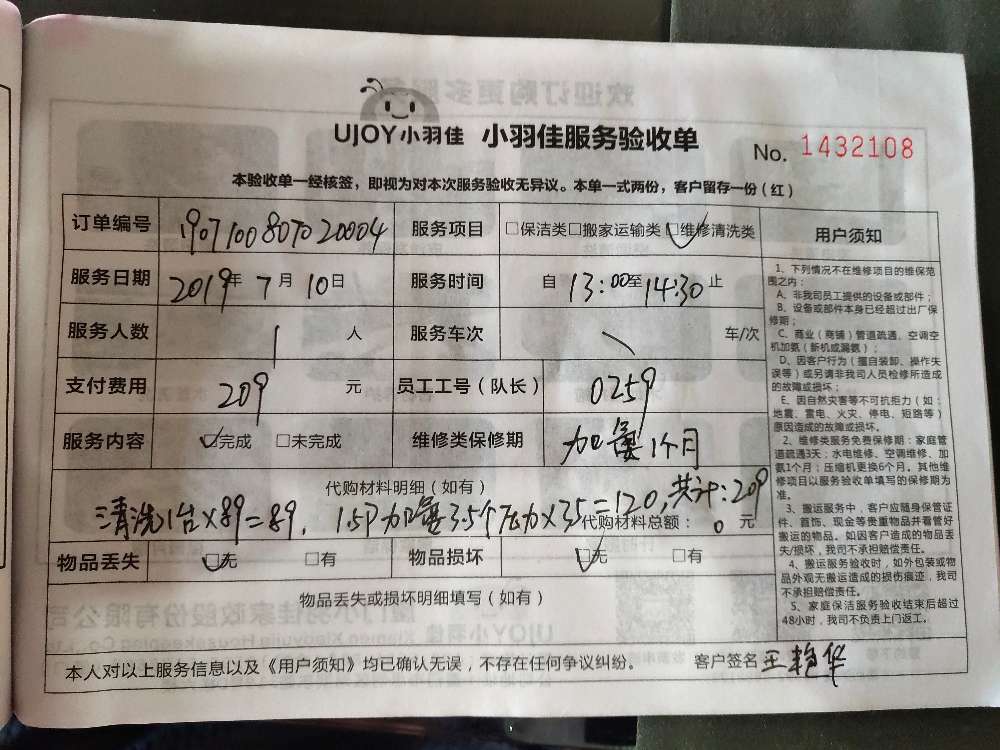 UJOY小羽佳 小羽佳服务验收单
No. 1432108
本验收单一经核签，即视为对本次服务验收无异议。本单一式两份，客户留存一份（红）
订单编号 190710080702 0004 服务项目 □保洁类□搬家运输类☑维修清洗类
服务日期 2019年 7月 10日 服务时间 自 13:00至14:30 止
服务人数 1 人 服务车次 \ 车/次
支付费用 209 元 员工工号（队长） 0259
服务内容 ☑完成 □未完成 维修类保修期 加氟1个月
代购材料明细（如有）
清洗1台×89=89, 加氟3.5个压力×35=120,共计:209
代购材料总额： 0 元
物品丢失 ☑无 □有 物品损坏 ☑无 □有
物品丢失或损坏明细填写（如有）
本人对以上服务信息以及《用户须知》均已确认无误，不存在任何争议纠纷。 客户签名 王艳华
用户须知
1、下列情况不在维修项目的维保范
围之内：
A、非我司员工提供的设备或部件；
B、设备或部件本身已经超过出厂保
修期；
C、商业（商铺）管道疏通、空调空
机加氨（新机或漏氨）；
D、因客户行为（擅自装卸、操作失
误等）或另请非我司人员检修所造成
的故障或损坏；
E、因自然灾害等不可抗拒力（如：
地震、雷电、火灾、停电、短路等）
原因造成的故障或损坏。
2、维修类服务免费保修期：家庭管
道疏通3天；水电维修、空调维修、加
氨1个月；压缩机更换6个月。其他维
修项目以服务验收单填写的保修期为
准。
3、搬运服务中，客户应随身保管证
件、首饰、现金等贵重物品并看管好
搬运的物品。如因客户造成的物品丢
失/损坏，我司不承担赔偿责任。
4、搬运服务验收时，如外包装或物
品外观无搬运造成的损伤痕迹，我司
不承担赔偿责任。
5、家庭保洁服务验收结束后超过
48小时，我司不负责上门返工。